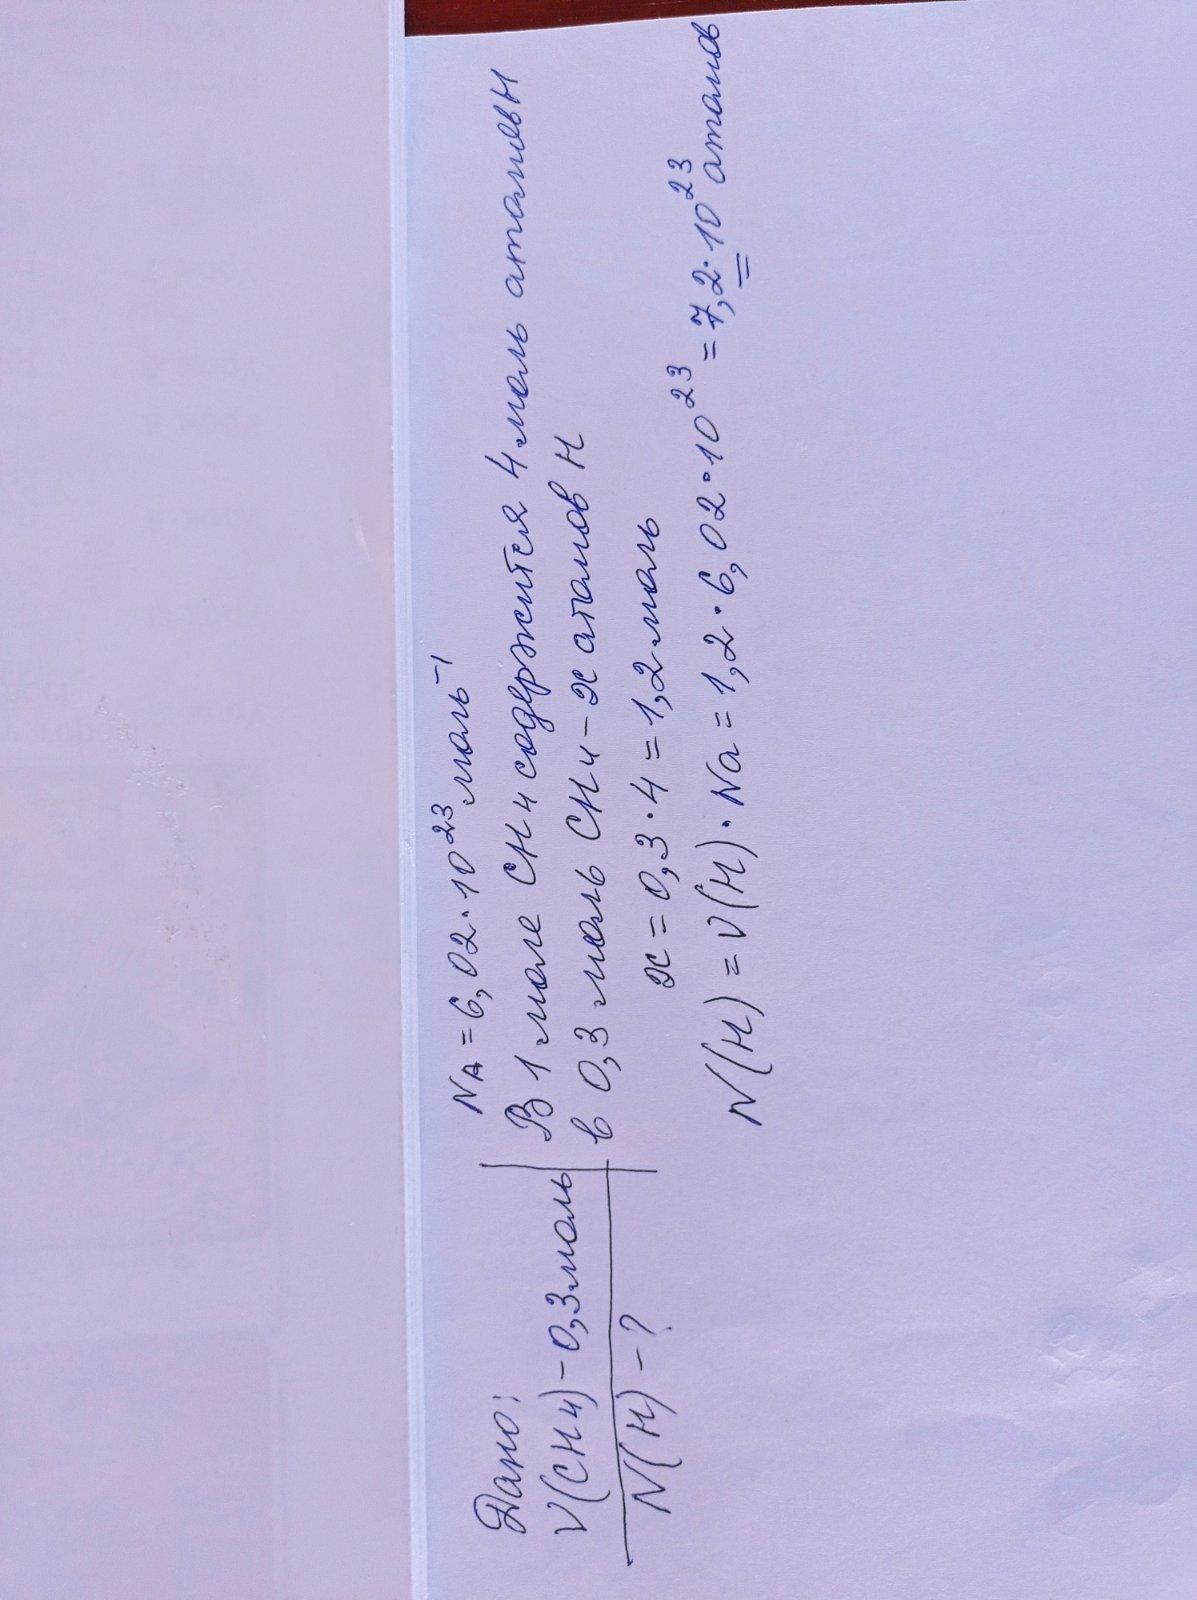 Дано:
ν(CH4) - 0,3 моль
N(H) - ?
NA = 6,02 · 10²³ моль⁻¹
В 1 моле CH4 содержится 4 моль атомов H
в 0,3 моль CH4 - x атомов H
x = 0,3 · 4 = 1,2 моль
N(H) = ν(H) · Na = 1,2 · 6,02 · 10²³ = 7,2 · 10²³ атомов